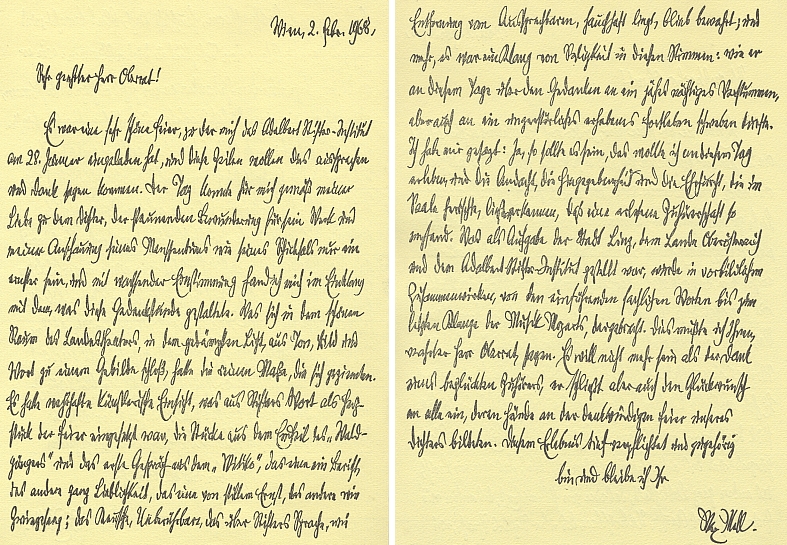 Wien, 2. Febr. 1968.
Sehr geehrter Herr Oberrat!
Es war eine sehr schöne Feier, zu der mich das Adalbert Stifter-Institut
am 28. Jänner eingeladen hat, und diese Zeilen wollen das aussprechen
und Dank sagen kommen. Der Tag konnte für mich gemäß meiner
Liebe zu dem Dichter, der staunenden Bewunderung für sein Werk und
meiner Anschauung seines Menschentums wie seines Schicksals nur ein
ernster sein, und mit wachsender Einstimmung fand ich mich im Einklang
mit dem, was diese Gedenkstunde gestaltete. Was sich in dem schönen
Raum des Landestheaters, in dem gedämpften Licht, aus Ton, Bild und
Wort zu einem Gebilde schloß, hatte die reinen Maße, die sich geziemten.
Es hatte wahrhafte künstlerische Einsicht, was aus Stifters Wort als Herz-
stück der Feier eingesetzt war, die Stücke aus dem Endteil des „Wald-
gängers" und das erste Gespräch aus dem „Witiko", das eine ein Bericht,
das andere ganz Lieblichkeit, das eine von stillem Ernst, das andere wie
Zwiegesang; das Keusche, Unberührbare, das über Stifters Sprache, wie
Entfernung vom Aussprechbaren, hauchhaft liegt, blieb bewahrt; und
mehr, es war ein Klang von Seligkeit in diesen Stimmen: wie er
an diesem Tage über den Gedanken an ein jähes nächtiges Verstummen,
aber auch an ein unzerstörliches erhabenes Fortleben schweben durfte.
Ich habe mir gesagt: Ja, so sollte es sein, das wollte ich an diesem Tag
erleben, und die Andacht, die Hingegebenheit und die Ehrfurcht, die im
Saale herrschte, ließ erkennen, daß eine erlesene Zuhörerschaft so
empfand. Was als Aufgabe der Stadt Linz, dem Lande Oberösterreich
und dem Adalbert Stifter-Institut gestellt war, wurde in vorbildlichem
Zusammenwirken, von den einführenden sachlichen Worten bis zum
letzten Klange der Musik Mozarts, dargebracht. Das mußte ich Ihnen,
verehrter Herr Oberrat, sagen. Es will nicht mehr sein als der Dank
eines beglückten Zuhörers, er schließt aber auch den Glückwunsch
an alle ein, deren Hände an der denkwürdigen Feier unseres
Dichters bildeten. Diesem Erlebnis tief verpflichtet und zugehörig
bin und bleibe ich Ihr
Max Mell.